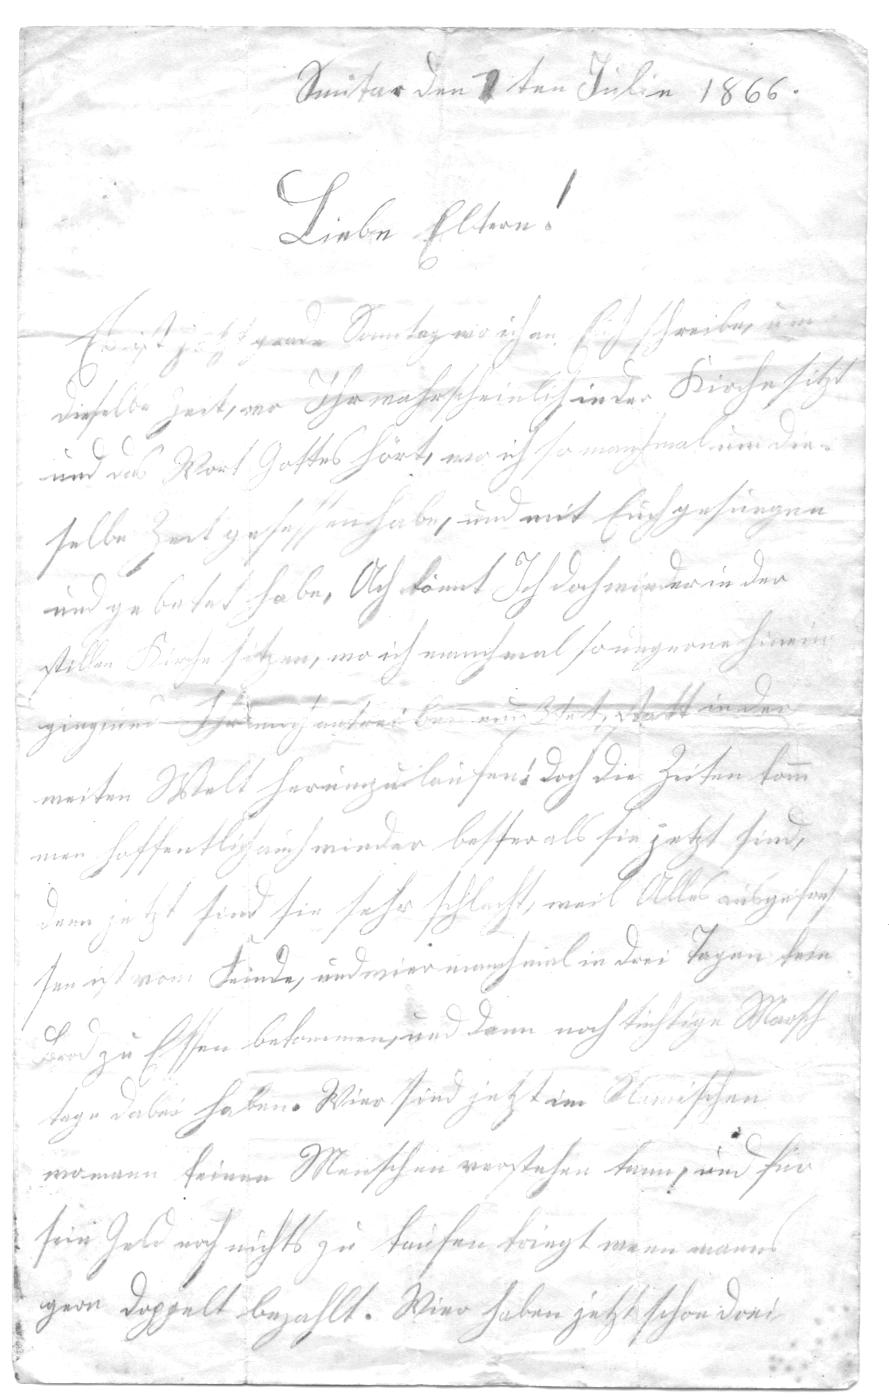 Smitar den 1ten Julie 1866.
Liebe Eltern!
Es ist jetzt grade Sonntag wo ich an Euch schreibe, um
dieselbe Zeit, wo Ihr wahrscheinlich in der Kirche sitzt
und das Wort Gottes hört, wo ich so manchmal um die-
selbe Zeit gesessen habe, und mit Euch gesungen
und gebetet habe, Ach könnt Ich doch wieder in der
stillen Kirche sitzen, wo ich manchmal so ungerne hinein
ging und Ihr mich antreiben mußtet, statt in der
weiten Welt herumzulaufen! doch die Zeiten kom
men hoffentlich auch wieder besser als sie jetzt sind,
denn jetzt sind sie sehr schlecht, weil Alles ausgefres
sen ist vom Feinde, und wier manchmal in drei Tagen kein
Brod zu Essen bekommen, und dann noch tüchtige Marsch
tage dabei haben. Wier sind jetzt im
wo mann keinen Menschen verstehen kann, und für
sein Geld noch nichts zu kaufen kriegt wenn manns
gern doppelt bezahlt. Wier haben jetzt schon drei